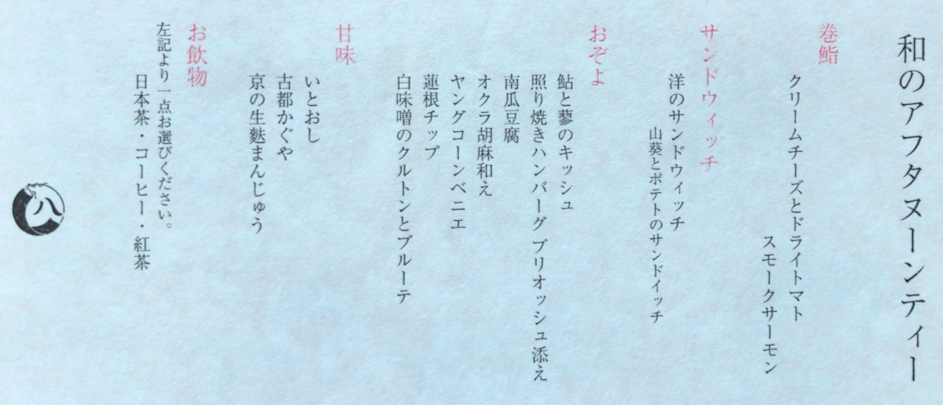 和のアフタヌーンティー
巻鮨
クリームチーズとドライトマト
スモークサーモン
サンドウィッチ
洋のサンドウィッチ
山葵とポテトのサンドイッチ
おぞよ
鮎と蓼のキッシュ
照り焼きハンバーグ ブリオッシュ添え
南瓜豆腐
オクラ胡麻和え
ヤングコーンベニエ
蓮根チップ
白味噌のクルトンとブルーテ
甘味
いとおし
古都かぐや
京の生麩まんじゅう
お飲物
左記より一点お選びください。
日本茶・コーヒー・紅茶
八